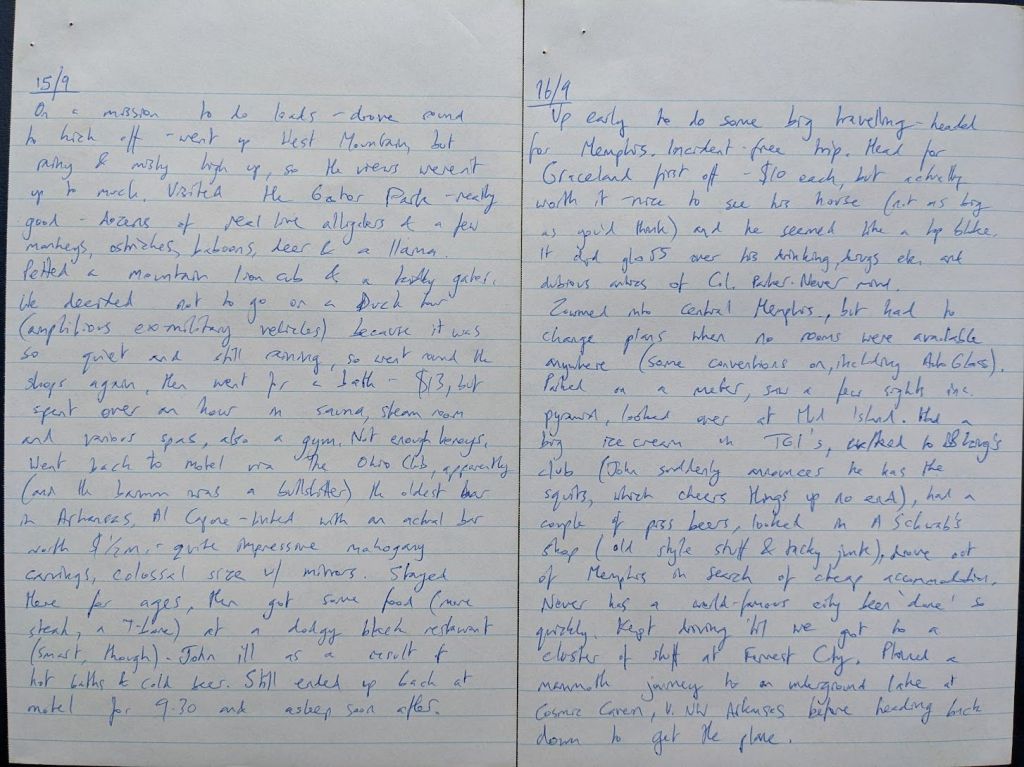 15/9
On a mission to do loads - drove round
to kick off - went up West Mountain, but
rainy & misty high up, so the views weren't
up to much. Visited the Gator Park - really
good - dozens of real live alligators & a few
monkeys, ostriches, baboons, deer & a llama.
Petted a mountain lion cub & a gator.
We decided not to go on a Duck tour
(amphibious ex-military vehicles) because it was
so quiet and still raining, so went round the
shops again, then went for a bath - $13, but
spent over an hour in sauna, steam room
and various spas, also a gym. Not enough
Went back to motel via the Ohio Club, apparently
(and the barman was a bullshitter) the oldest bar
in Arkansas, Al Capone-linked with an actual bar
worth $½m. - quite impressive mahogany
carvings, colossal size w/ mirrors. Stayed
there for ages, then got some food (more
steak, a T-bone) at a dodgy black restaurant
(smart, though). John ill as a result of
hot baths & cold beer. Still ended up back at
motel for 9.30 and asleep soon after.
16/9
Up early to do some big travelling - headed
for Memphis. Incident-free trip. Head for
Graceland first off - $10 each, but actually
worth it - nice to see his house (not as big
as you'd think) and he seemed like a top bloke.
It did gloss over his drinking, drugs etc. and
dubious antics of Col. Parker. Never mind.
Zoomed into central Memphis, but had to
change plans when no rooms were available
anywhere (some conventions on, including Auto Glass).
Parked on a meter, saw a few sights inc.
pyramid, looked over at Mud Island. Had a
big ice cream in TGI's, walked to BB King's
club (John suddenly announces he has the
squits, which cheers things up no end), had a
couple of piss beers, looked in A Schwab's
shop (old style stuff & tacky junk), drove out
of Memphis in search of cheap accommodation.
Never has a world-famous city been 'done' so
quickly. Kept driving 'til we got to a
cluster of stuff at Forrest City. Planned a
mammoth journey to an underground lake at
Cosmic Cavern, V. NW Arkansas before heading back
down to get the plane.